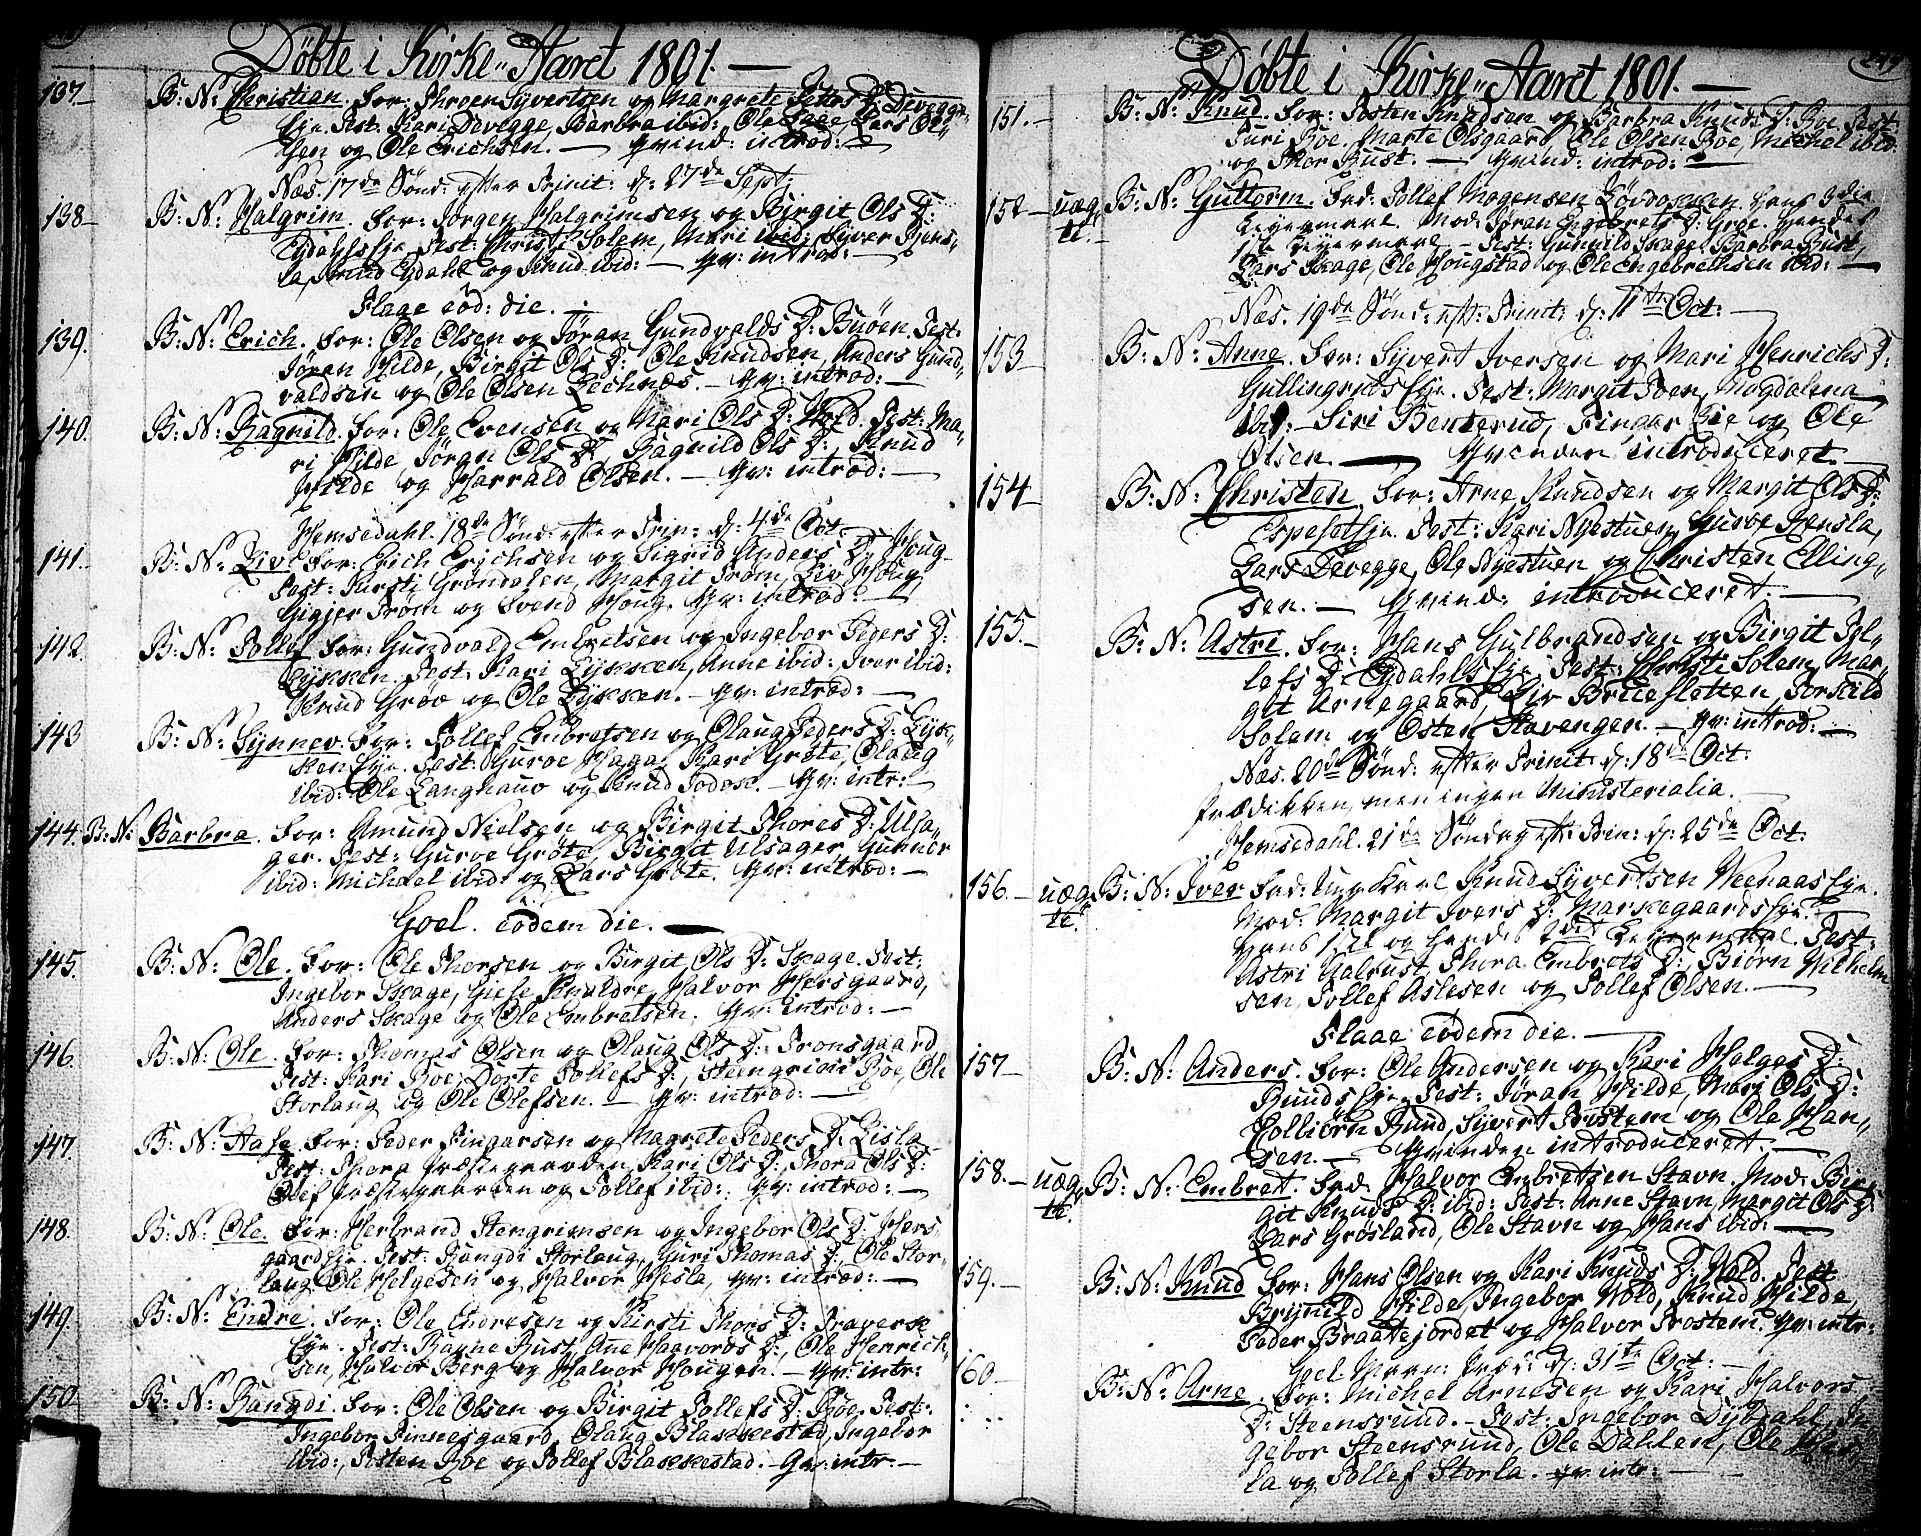 Döbte i Kirke„Aaret 1801.
137. B: N: Christian. For: Throen Syvertsen og Margrete Petters D: Devegge„
Eye. Test: Kari Devegge, Barbra ibid: Ole Lage, Lars Ol„
sen og Ole Erichsen. — Qvind: introd:
Næs. 17de Sönd: efter Trinit: d: 27de Sept:
138. B: N: Halgrim. For: Jörgen Halgrimsen og Birgit Ols D:
Eydahls Eye. Test: Christi Solem, Mari ibid: Syver
la, Knud Eydahl og Knud ibid: — Qv: introd: —
Flaae eod: die.
139. B: N: Erich. For: Ole Olsen og Jöran Gundvalds D: Buöen. Test:
Jöran Hilde, Birgit Ols D: Ole Knudsen, Anders Gund„
valdsen og Ole Olsen Lechnæs. — Qv: introd: —
140. B: N: Ragnild. For: Ole Evensen og Mari Ols D: Wold. Test: Ma„
ri Hilde, Jöran Ols D: Ragnild Ols D: Knud
Hilde og Harrald Olsen. — Qv: introd: —
Hemsedahl. 18de Sönd: efter Trin: d: 4de Oct:
141. B: N: Liv. For: Erich Erichsen og Sigrid Anders D: Houg
Test: Kirsti Gröndalen, Margit Tröm, Liv Houg,
Gigjer Tröm og Svend Houg. Qv: introd: —
142. B: N: Tollef. For: Gundvald Embretsen og Ingebor Peders D:
Lykken. Test: Kari Lykken, Anne ibid: Iver ibid:
Knud Gröo og Ole Lykken. — Qv: introd: —
143 B: N: Synnev. For: Tollef Embretsen og Olaug Peders D: Lyk„
ken Eye. Test: Guroe Haga, Kari Gröte, Olaug
ibid: Ole Langhauo og Knud Todok. — Qv: intr: —
144. B: N: Barbra. For: Amund Nielsen og Birgit Thores D: Ulsa„
ger. Test: Guroe Gröte, Birgit Ulsager, Gunner
ibid: Michael ibid: og Lars Gröte. Qv: introd: —
Goel. eodem die. —
145. B: N: Ole. For: Ole Thorsen og Birgit Ols D: Skage. Test:
Ingebor Skage, Giefe Knaldre, Halvor Hersgaard,
Anders Skage og Ole Embretsen. Qv: introd: —
146. B: N: Ole. For: Thomas Olsen og Olaug Ols D: Tronsgaard
Test: Kari Roe, Dorte Tollefs D:, Steengrim Roe, Ole
Storlaug og Ole Olefsen. — Qv: introd: —
147. B: N: Aase. For: Peder Fingarsen og Magrete Peders D: Lisla
Test: Thora Præstegaarden, Kari Ols D: Thora Ols D:
Olef Præstegaarden og Tollef ibid: Qv: introd: —
148. B: N: Ole. For: Herbrand Stengrimsen og Ingebor Ols D: Hers„
gaards Eye. Test: Rangdi Storlaug, Guri Thomas D: Ole Stor„
laug, Ole Helgesen og Halvor Hesla, Qv: introd: —
149. B: N: Endre. For: Ole Endresen og Kirsti Thors D: Traverse
Eye. Test: Ragne Rust, Ane Haavords D:, Ole Henrich„
sen, Halvor Berg og Halvor Hougen. — Qv: intr:
150. B: N: Rangdi. For: Ole Olsen og Birgit Tollefs D: Roe. Test:
Ingebor Finnesgaard, Olaug Blakkestad, Ingebor
ibid:, Tosten Roe og Tollef Blakkestad. — Qv: intr: —
249
Döbte i Kirke„Aaret 1801. —
151. B: N: Knud. For: Tosten Knudsen og Barbra Knuds D: Roe. Test:
Turi Roe, Marte Olsgaard, Ole Olsen Roe, Michel ibid:
og Thor Rust. — Qvind: introd:
152 — uæg„te. B: N: Guttorm. Fad: Tollef Mogensen Lövdokken. Hans 3die
Leyermaal. Mod: Jöran Engebrets D: Gröe. Hendes
1ste Leyermaal. — Test: Gunnild Skage, Barbra Rust,
Lars Skage, Ole Hougstad og Ole Engebrethsen ibid: —
Næs. 19de Sönd: eft: Trinit: d: 11te Oct:
153 B: N: Anne. For: Syvert Iversen og Mari Henrichs D:
Gullingruds Eye. Test: Margit Toen, Magdalena
ibid: — Siri Benterud, Fingar Lie og Ole
Olsen. — Qvinden introduceret. —
154 B: N: Christen. For: Arne Knudsen og Margit Ols D:
Espeset Eye. Test: Kari Nyestuen, Guroe Rensla,
Lars Devegge, Ole Nyestuen og Christen Elling„
sen. — Qvind: introduceret. —
155. B: N: Astri. For: Hans Gulbrandsen og Birgit Tol„
lefs D: Eydahls Eye. Test: Christi Solem, Mar„
git Arnegaard, Liv Brueslotten, Torkild
Solem og Osten Stavengen. — Qv: introd: —
Næs. 20de Sönd: efter Trinit: d: 18de Oct:
Prædikken, men ingen Ministerialia. —
Hemsedahl. 21de Söndag eft: Trin: d: 25de Oct:
156. — uæg„te. B: N: Iver. Fad: Ung Karl Knud Syvertsen Veenaas Eye.
Mod: Margit Ivers D: Markegaards Eye.
Hans 1ste og hendes 2det Leyermaal. Test:
Astri Aalrust, Thora Embrets D:, Biörn Wilhelm
sen, Tollef Aslesen og Tollef Olsen. —
Flaae eodem die. —
157 B: N: Anders. For: Ole Andersen og Kari Helges D:
Ruuds Eye. Test: Jöran Hilde, Mari Ols D:
Colbiörn Ruud, Syvert Trostem og Ole Han„
sen. — Qvinden introduceret. —
158. — uæg„te. B: N: Embret. Fad: Halvor Embretsen Stavn. Mod: Bir„
git Knuds D: ibid: Test: Anne Stavn, Margit Ols D:
Lars Grösland, Ole Stavn og Hans ibid: —
159. — B: N: Knud. For: Hans Olsen og Kari Knuds D: Wold. Test
Brynild Hilde, Ingebor Wold, Knud Hilde,
Peder Braatejordet og Halvor Trostem. Qv: intr:
Goel. Præd: d: 31te Oct: —
160 — B: N: Arne. For: Michel Arnesen og Kari Halvors
D: Steensruud. — Test: Ingebor Dybdahl, In„
gebor Steensruud, Ole Dahlen, Ole
la og Tollef Storla. Qv: intr: —